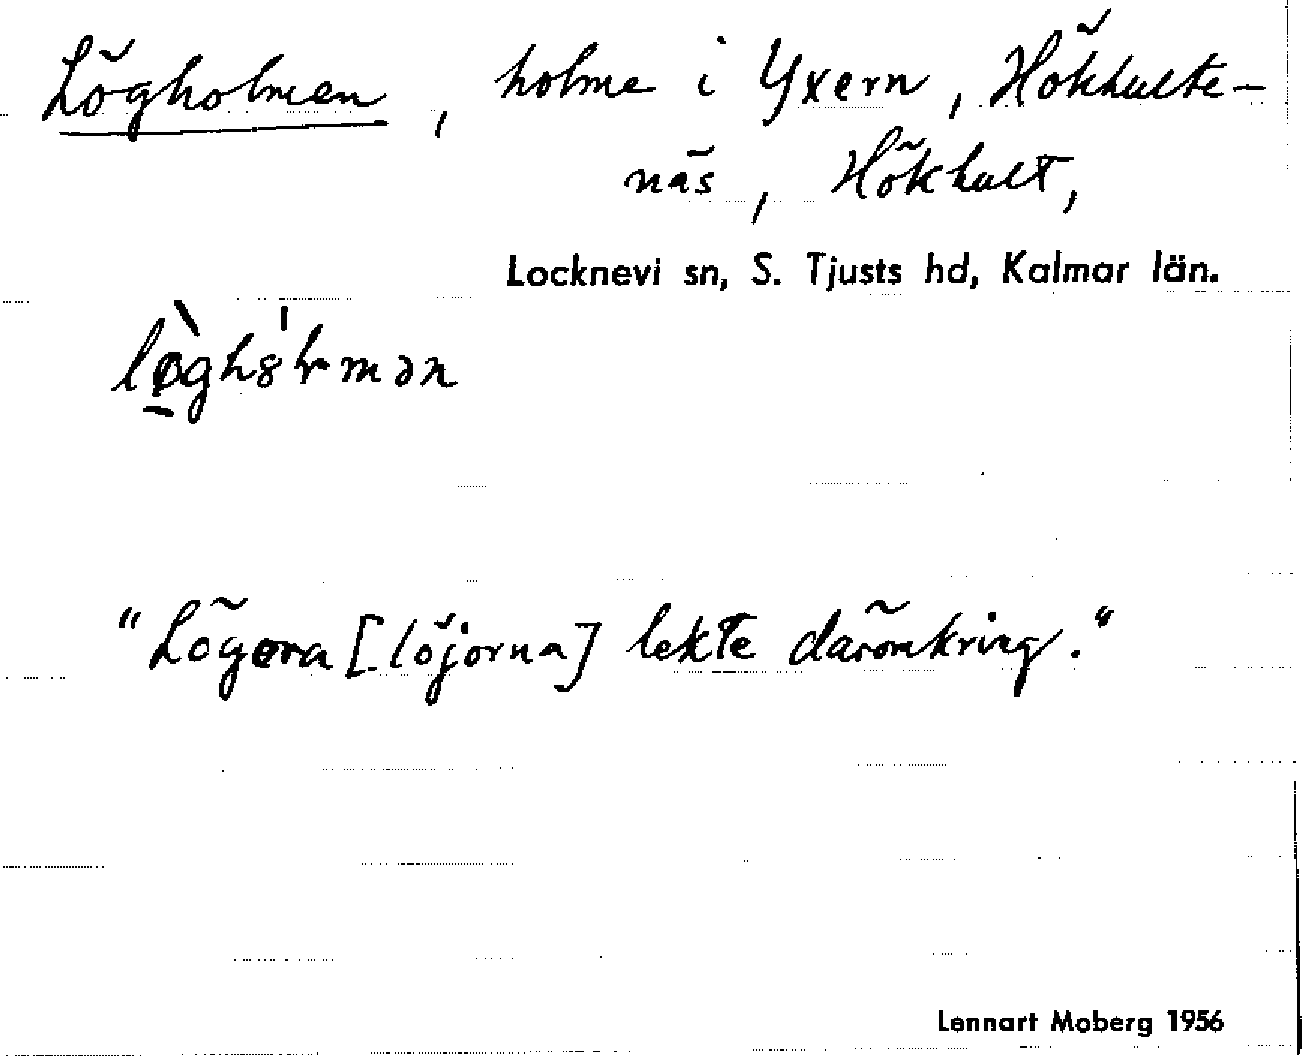 Lögholmen, holme i Yxern, Hökhulte-
näs, Hökhult,
Locknevi sn, S. Tjusts hd, Kalmar län.
"Lögera [löjorna] lekte däromkring."
Lennart Moberg 1956